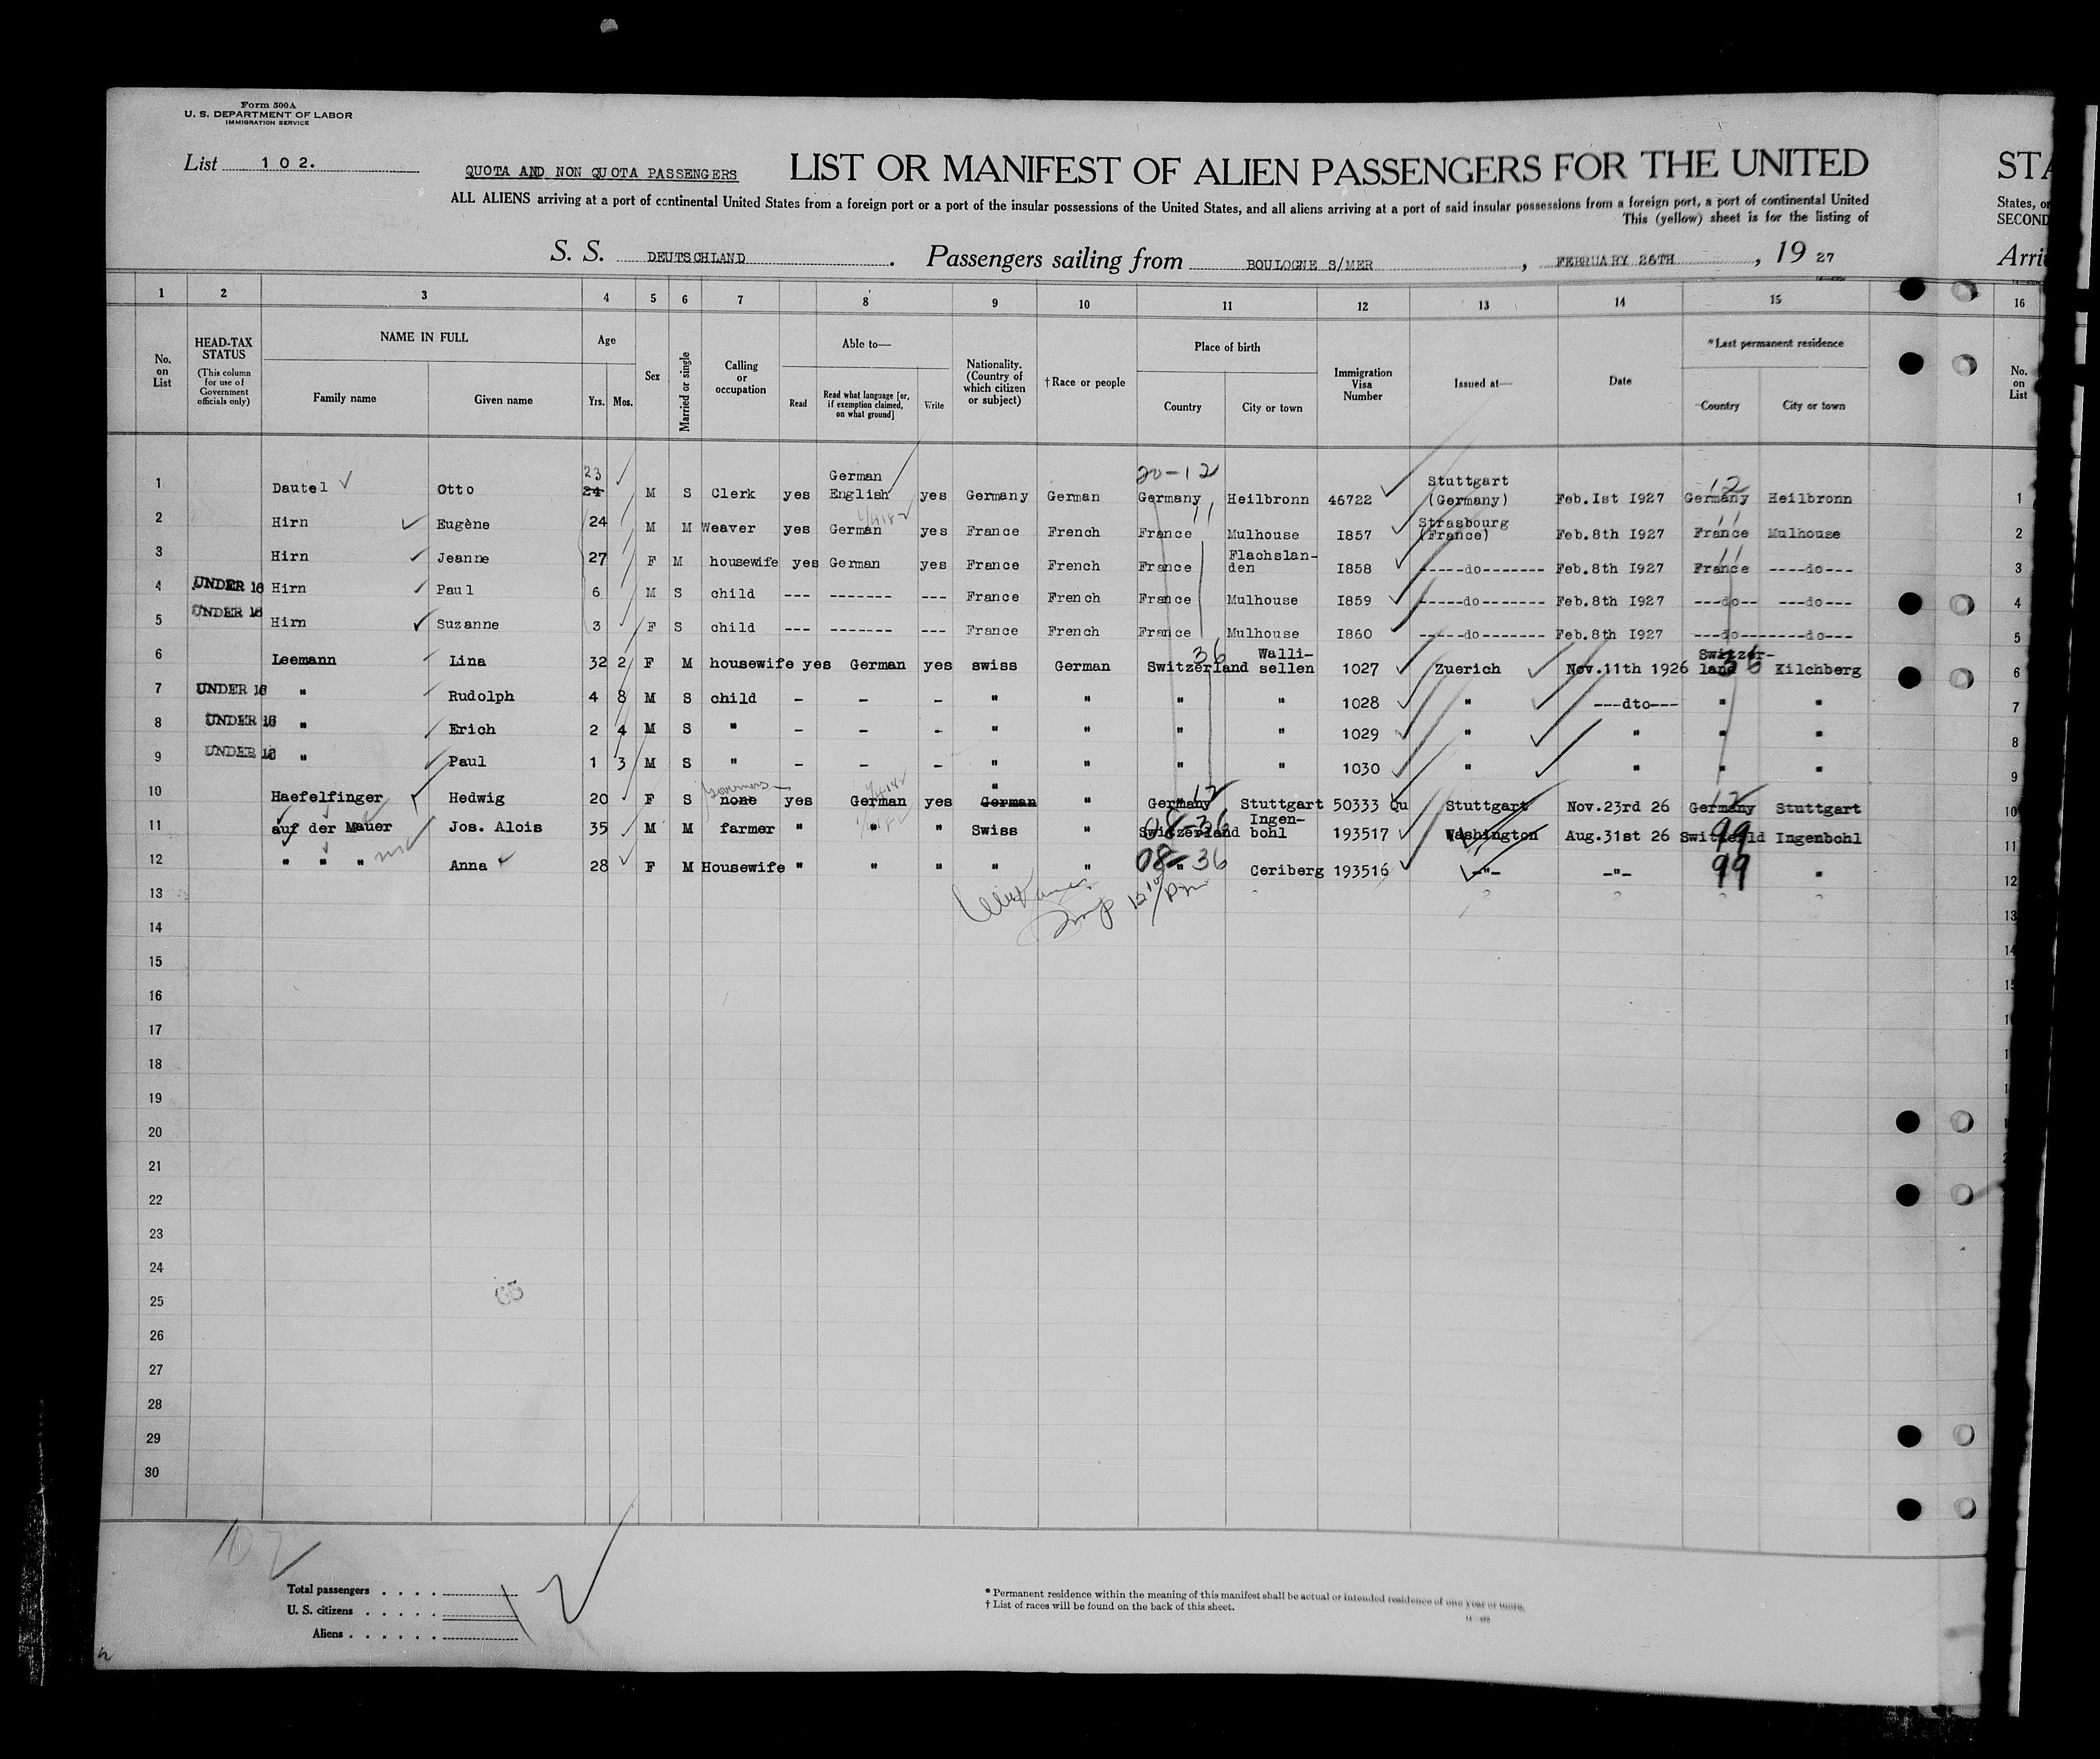 Form 500A
U. S. DEPARTMENT OF LABOR
IMMIGRATION SERVICE
List 102.
QUOTA AND NON QUOTA PASSENGERS LIST OR MANIFEST OF ALIEN PASSENGERS FOR THE UNITED STA
ALL ALIENS arriving at a port of continental United States from a foreign port or a port of the insular possessions of the United States, and all aliens arriving at a port of said insular possessions from a foreign port, a port of continental United States, or
This (yellow) sheet is for the listing of SECOND
S. S. DEUTSCHLAND. Passengers sailing from BOULOGNE S/MER, FEBRUARY 26TH, 19 27 Arri
1 2 3 4 5 6 7 8 9 10 11 12 13 14 15 16
No. on List
HEAD-TAX STATUS
(This column for use of Government officials only)
NAME IN FULL
Family name Given name
Age
Yrs. Mos.
Sex
Married or single
Calling or occupation
Able to—
Read Read what language [or, if exemption claimed, on what ground] Write
Nationality. (Country of which citizen or subject)
† Race or people
Place of birth
Country City or town
Immigration Visa Number
Issued at—
Date
*Last permanent residence
Country City or town
No. on List
1 Dautel Otto 23 24 M S Clerk yes German English yes Germany German 20-12 Germany Heilbronn 46722 Stuttgart (Germany) Feb.1st I927 12 Germany Heilbronn 1
2 Hirn Eugène 24 M M Weaver yes German yes France French 11 France Mulhouse I857 Strasbourg (France) Feb.8th I927 11 France Mulhouse 2
3 Hirn Jeanne 27 F M housewife yes German yes France French France Flachslan-den I858 -----do------- Feb.8th I927 11 France ----do--- 3
4 UNDER 16 Hirn Paul 6 M S child --- ------- --- France French France Mulhouse I859 -----do------- Feb.8th I927 ---do-- ---do--- 4
5 UNDER 16 Hirn Suzanne 3 F S child --- ------- --- France French France Mulhouse I860 -----do------- Feb.8th I927 ---do-------do--- 5
6 Leemann Lina 32 2 F M housewife yes German yes swiss German 36 Switzerland Walli-sellen 1027 Zuerich Nov.11th 1926 Switzer-land 36 Kilchberg 6
7 UNDER 16 " Rudolph 4 8 M S child - - - " " " " 1028 " ---dto--- " " 7
8 UNDER 16 " Erich 2 4 M S " - - - " " " " 1029 " " " " 8
9 UNDER 16 " Paul 1 3 M S " - - - " " " " 1030 " " " " 9
10 Haefelfinger Hedwig 20 F S none yes German yes " German " Germany 12 Stuttgart 50333 Qu Stuttgart Nov.23rd 26 12 Germany Stuttgart 10
11 auf der Mauer Jos. Alois 35 M M farmer " " " Swiss " 08-36 Switzerland Ingen-bohl 193517 Washington Aug.31st 26 99 Ingenbohl 11
12 " " " Anna 28 F M Housewife " " " " " 08-36 " Ceriberg 193516 -"- -"- 99 " 12
13 13
14 14
15
16
17
18
19
20
21
22
23
24
25
26
27
28
29
30
102
Total passengers . . . .
U. S. citizens . . . . .
Aliens . . . . . .
12
* Permanent residence within the meaning of this manifest shall be actual or intended residence of one year or more.
† List of races will be found on the back of this sheet.